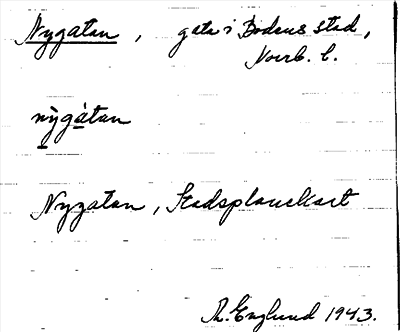 Nygatan, gata i Bodens stad,
Norrb. l.
nỳgátan
Nygatan, Stadsplanekart
Th. Englund 1943.